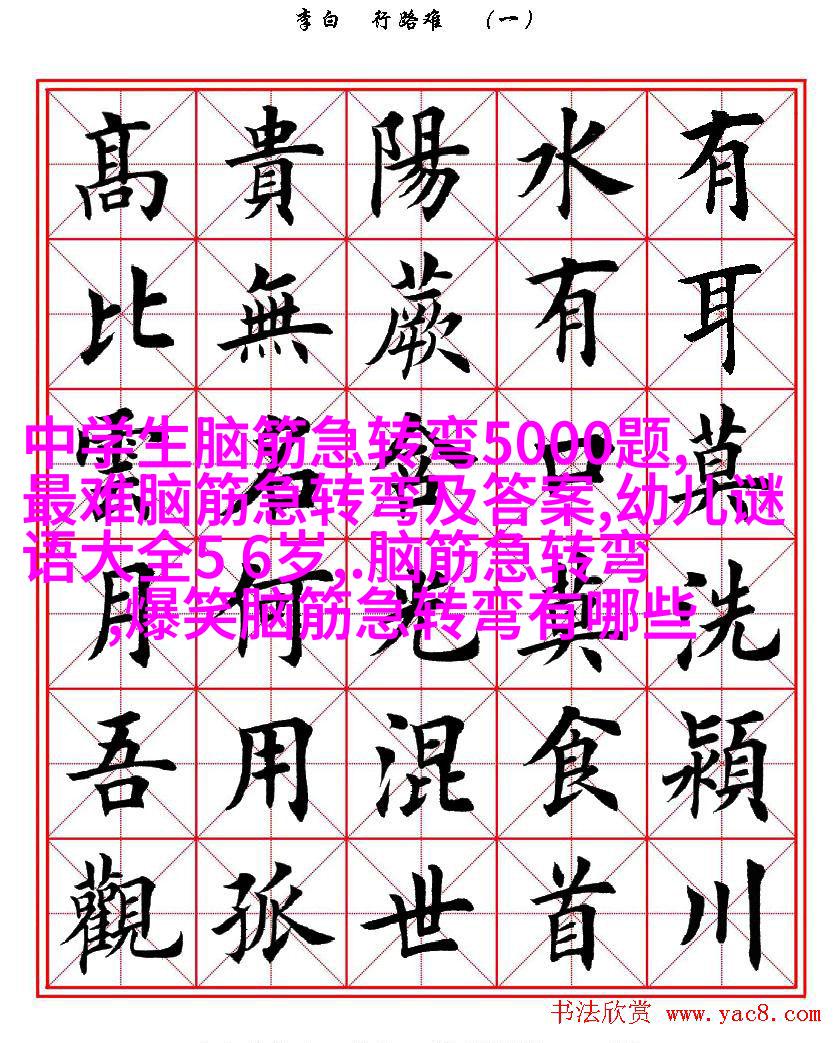 李白 行路难 （一）
有耳莫洗潁川
水有口莫食首
陽蕨含光混世
貴無名何用孤
髙比雲月吾觀
中学生脑筋急转弯5000题,
最难脑筋急转弯及答案,幼儿谜
语大全5 6岁,.脑筋急转弯
,爆笑脑筋急转弯有哪些
书法欣赏 www.yac8.com